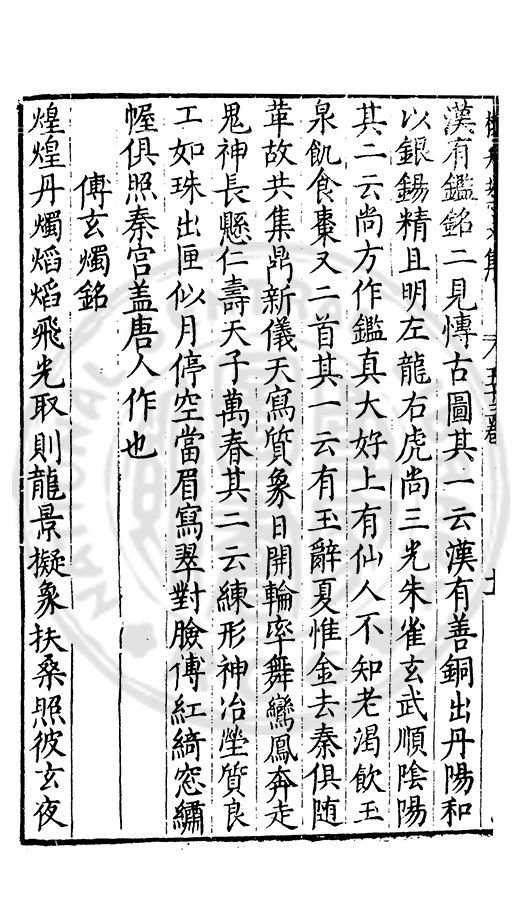 漢有鑑銘二見慱古圖其一云漢有善銅出丹陽和
以銀錫精且明左龍右虎尚三光朱雀玄武順陰陽
其二云尚方作鑑真大好上有仙人不知老渴飲玉
泉飢食棗又二首其一云有玉辭夏惟金去秦俱随
革故共集鼎新儀天寫質象日開輪率舞鸞鳳奔走
鬼神長懸仁壽天子萬春其二云練形神冶瑩質良
工如珠出匣似月停空當眉寫翠對臉傅紅綺窓繡
幄俱照秦宫盖唐人作也
傅玄燭銘
煌煌丹燭熖熖飛光取則龍景擬象扶桑照彼玄夜